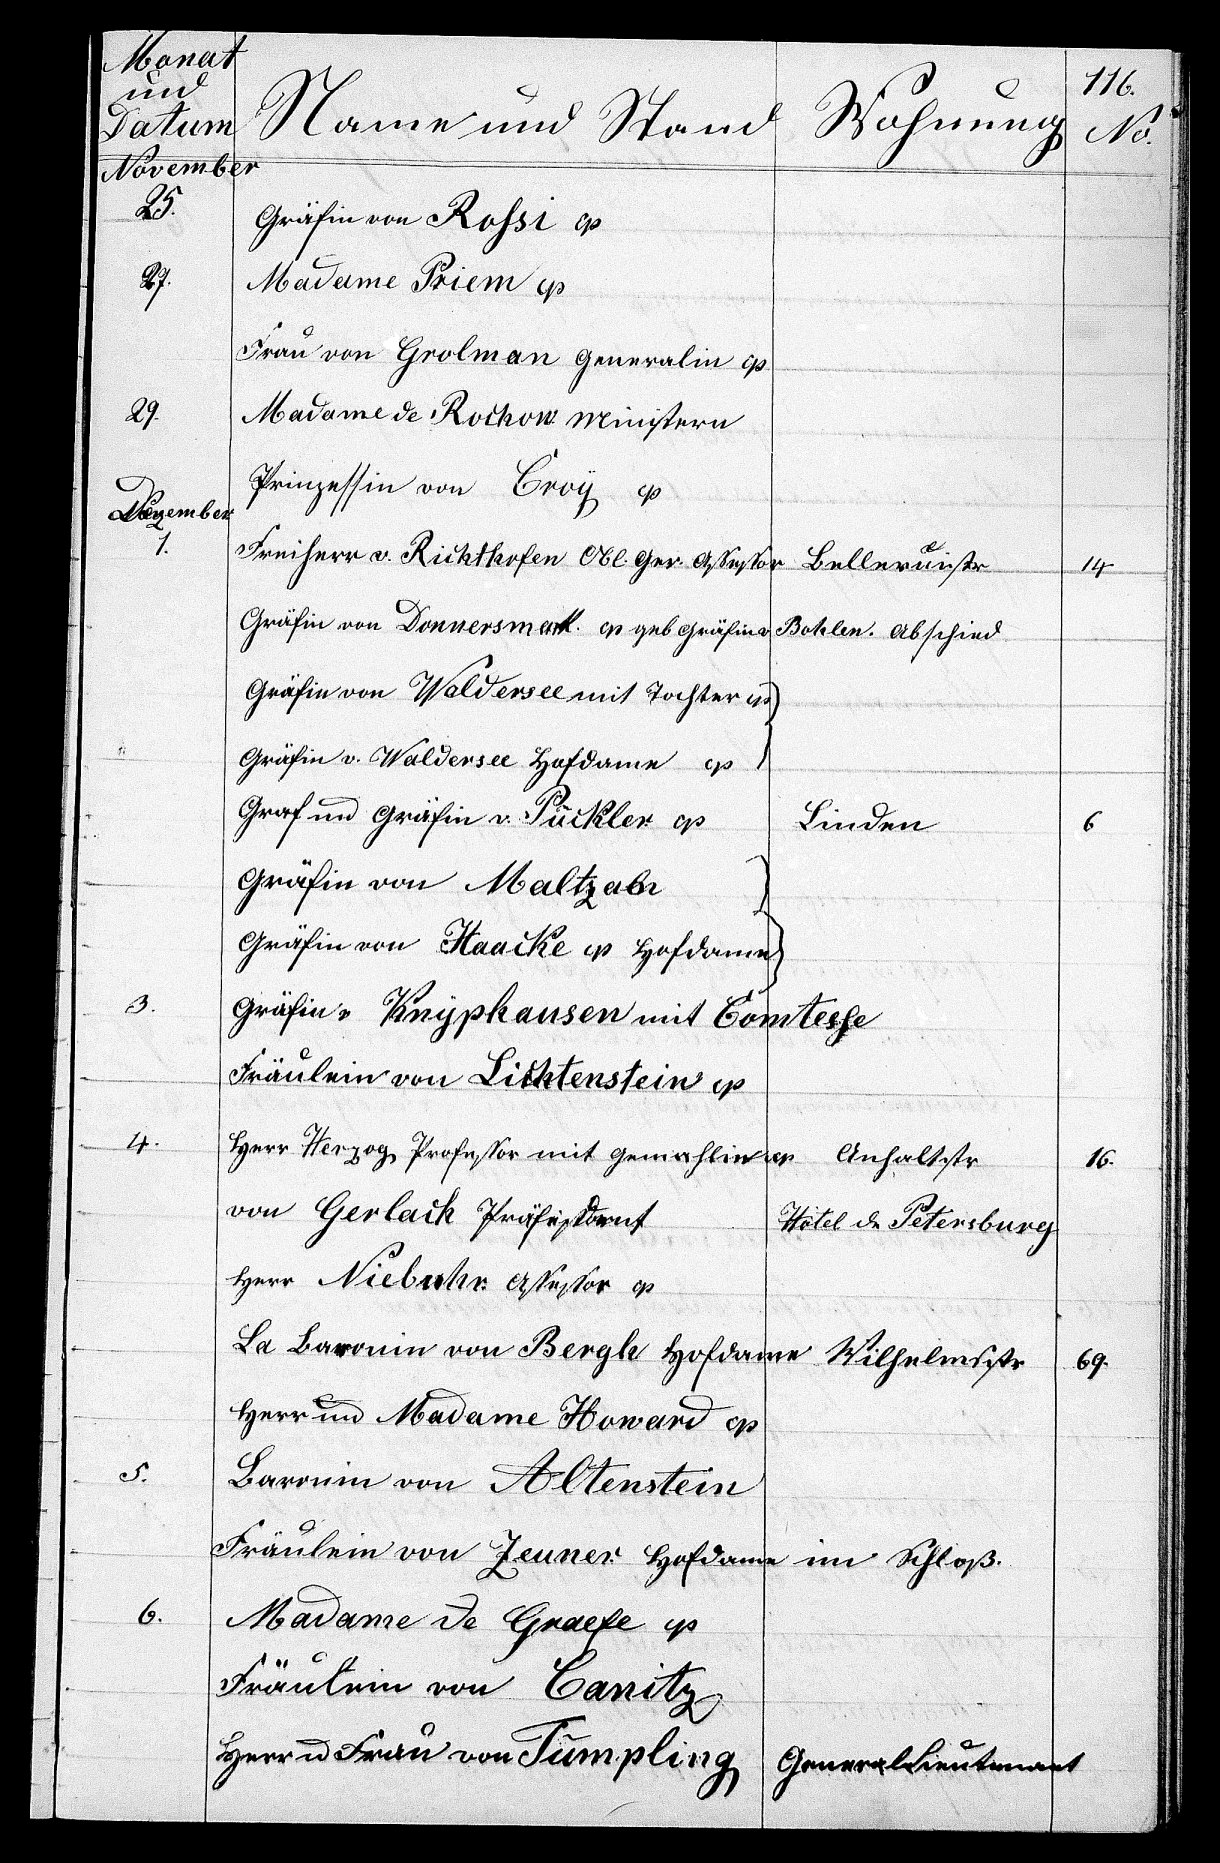 116.
Monat und Datum Name und Stand Wohnung No.
November
25. Gräfin von Rossi cp
27. Madame Priem cp
Frau von Grolman Generalin cp
29. Madame de Rochow Ministern
Prinzessin von Croÿ cp
Dezember
1. Freiherr v. Richthofen Obl. Ger. Assessor Bellevuestr 14
Gräfin von Donnersmark cp geb Gräfin v Bohlen. Abschied
Gräfin von Waldersee mit Tochter cp
Gräfin v. Waldersee Hofdame cp
Graf und Gräfin v. Pückler cp Linden 6
Gräfin von Maltzahn
Gräfin von Haacke cp Hofdame
3. Gräfin v Knÿphausen mit Comtesse
Fräulein von Lichtenstein cp
4. Herr Herzog Professor mit Gemahlin cp Anhaltstr 16.
von Gerlach Präsident Hôtel de Petersburg
Herr Niebuhr Assessor cp
La Baronin von Bergh Hofdame Wilhelmstr 69.
Herr und Madame Howard cp
5. Baronin von Altenstein
Fräulein von Zeuner Hofdame im Schloß.
6. Madame de Graefe cp
Fräulein von Canitz
Herr u Frau von Tümpling General Lieutenant